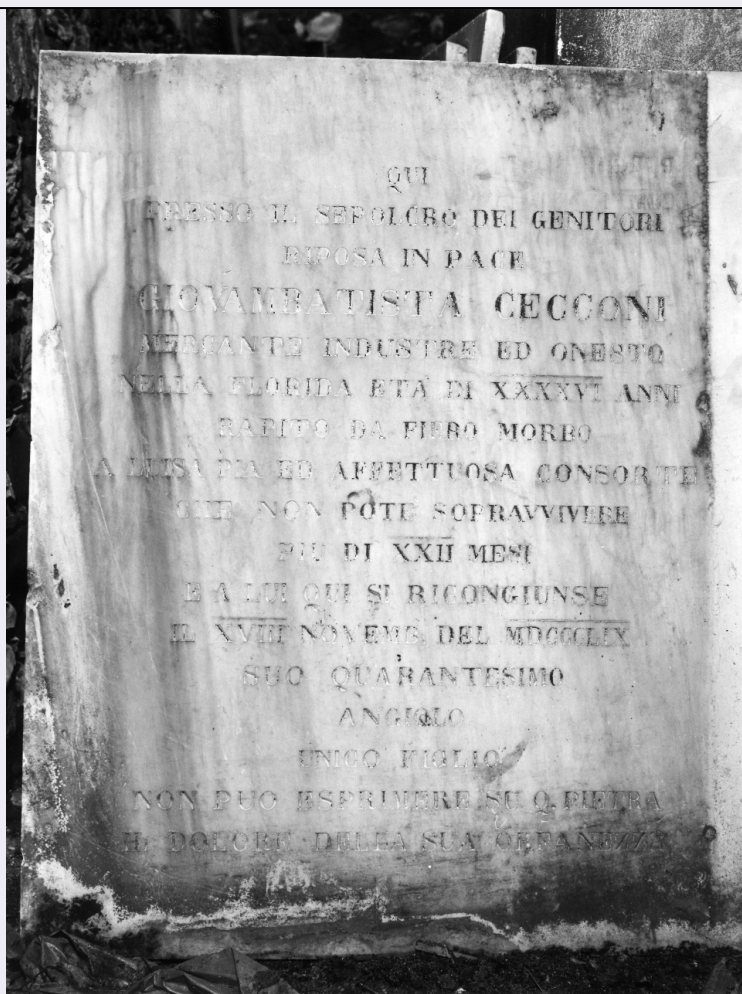 QUI
PRESSO IL SEPOLCRO DEI GENITORI
RIPOSA IN PACE
GIOVAMBATISTA CECCONI
MERCANTE INDUSTRE ED ONESTO
NELLA FLORIDA ETÀ DI XXXXVI ANNI
RAPITO DA FIERO MORBO
A LUISA PIA ED AFFETTUOSA CONSORTE
CHE NON POTÈ SOPRAVVIVERE
PIÙ DI XXII MESI
E A LUI QUI SI RICONGIUNSE
IL XVIII NOVEMB. DEL MDCCCLIX
SUO QUARANTESIMO
ANGIOLO
UNICO FIGLIO
NON PUO ESPRIMERE SU Q. PIETRA
IL DOLORE DELLA SUA ORFANEZZA